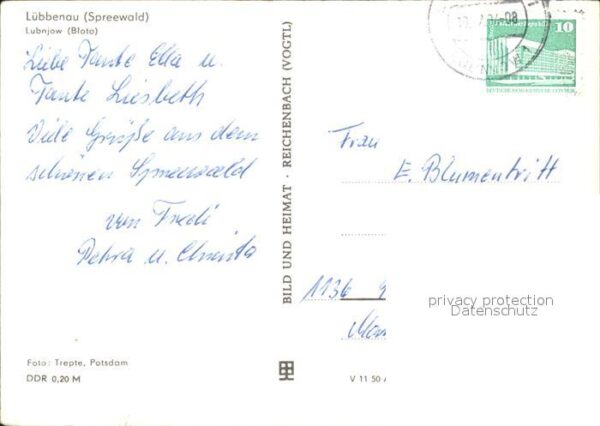 Lübbenau (Spreewald)
Lubnjow (Błota)
Liebe Tante Ella u.
Tante Liesbeth
Viele Grüße aus dem
schönen Spreewald
von Fredi
Petra u. Christa
Foto: Trepte, Potsdam
DDR 0,20 M
BILD UND HEIMAT · REICHENBACH (VOGTL)
V 11 50
10
Frau
E. Blumentritt
1136
privacy protection
Datenschutz